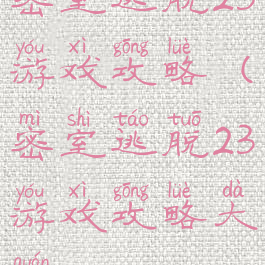 密室逃脱23
yóu xì gōng lüè
游戏攻略（
mì shì táo tuō
密室逃脱23
yóu xì gōng lüè dà
游戏攻略大
quán